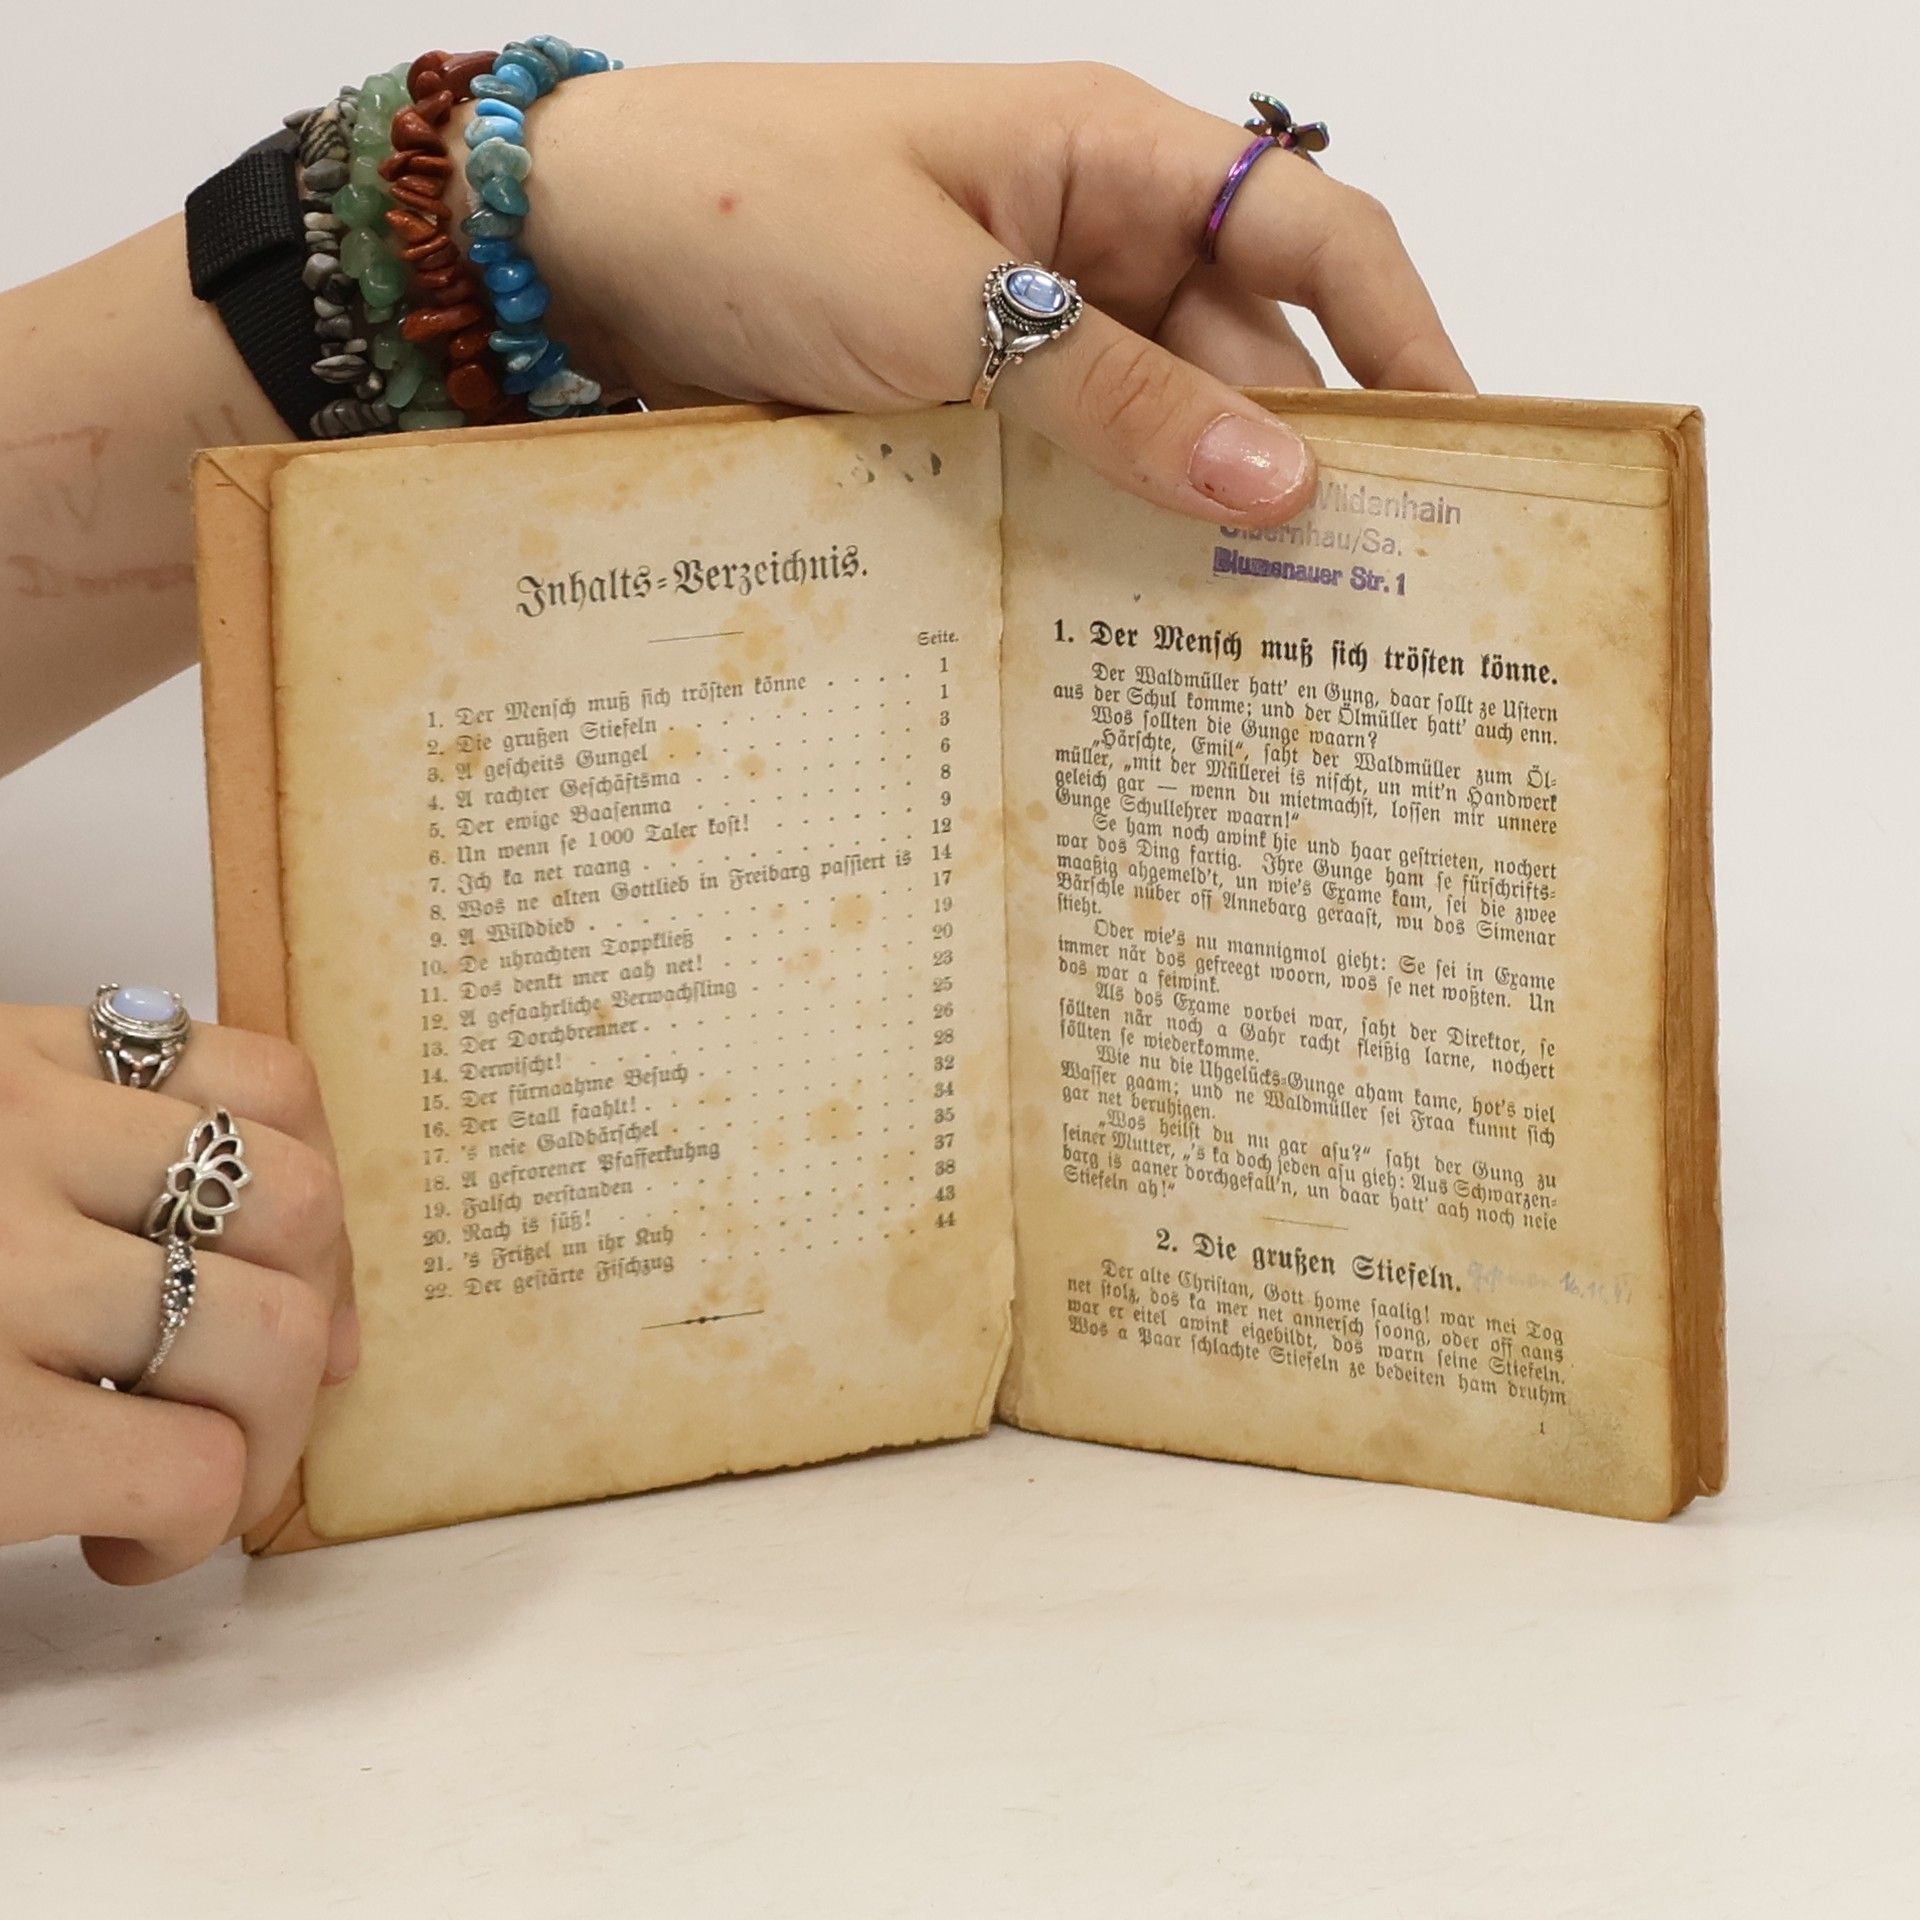 Inhalts-Verzeichnis.
Seite.
1. Der Mensch muß sich trösten könne . . . . 1
2. Die grußen Stiefeln . . . . . . . . . 1
3. A gescheits Gungel . . . . . . . . . 3
4. A rachter Geschäftsma . . . . . . . . 6
5. Der ewige Baasenma . . . . . . . . 8
6. Un wenn se 1000 Taler kost! . . . . . . 9
7. Ich ka net raang . . . . . . . . . . 12
8. Wos ne alten Gottlieb in Freibarg passiert is 14
9. A Wilddieb . . . . . . . . . . . 17
10. De uhrachten Toppkließ . . . . . . . 19
11. Dos denkt mer aah net! . . . . . . . 20
12. A gefaahrliche Verwachsling . . . . . . 23
13. Der Dorchbrenner . . . . . . . . . 25
14. Derwischt! . . . . . . . . . . . . 26
15. Der fürnaahme Besuch . . . . . . . . 28
16. Der Stall faahlt! . . . . . . . . . . 32
17. 's neie Galdbärschel . . . . . . . . . 34
18. A gefrorener Pfafferkuhng . . . . . . . 35
19. Falsch verstanden . . . . . . . . . . 37
20. Rach is süß! . . . . . . . . . . . 38
21. 's Fritzel un ihr Kuh . . . . . . . . 43
22. Der gestärte Fischzug . . . . . . . . 44
Wildenhain
Olbernhau/Sa.
Blumenauer Str. 1
1. Der Mensch muß sich trösten könne.
Der Waldmüller hatt' en Gung, daar sollt ze Ustern
aus der Schul komme; und der Ölmüller hatt' auch enn.
Wos sollten die Gunge waarn?
„Härschte, Emil“, saht der Waldmüller zum Öl-
müller, „mit der Müllerei is nischt, un mit'n Handwerk
geleich gar — wenn du mietmachst, lossen mir unnere
Gunge Schullehrer waarn!“
Se ham noch awink hie und haar gestrieten, nochert
war dos Ding fartig. Ihre Gunge ham se fürschrifts-
maaßig ahgemeld't, un wie's Exame kam, sei die zwee
Bärschle nüber off Annebarg geraast, wu dos Simenar
stieht.
Oder wie's nu mannigmol gieht: Se sei in Exame
immer när dos gefreegt woorn, wos se net woßten. Un
dos war a feiwink.
Als dos Exame vorbei war, saht der Direktor, se
söllten när noch a Gahr racht fleißig larne, nochert
söllten se wiederkomme.
Wie nu die Uhgelücks-Gunge aham kame, hot's viel
Wasser gaam; und ne Waldmüller sei Fraa kunnt sich
gar net beruhigen.
„Wos heilst du nu gar asu?“ saht der Gung zu
seiner Mutter, „'s ka doch jeden asu gieh: Aus Schwarzen-
barg is aaner dorchgefall'n, un daar hatt' aah noch neie
Stiefeln ah!“
2. Die grußen Stiefeln.
Der alte Christan, Gott home saalig! war mei Tog
net stolz, dos ka mer net annersch soong, oder off aans
war er eitel awink eigebildt, dos warn seine Stiefeln.
Wos a Paar schlachte Stiefeln ze bedeiten ham druhm
1